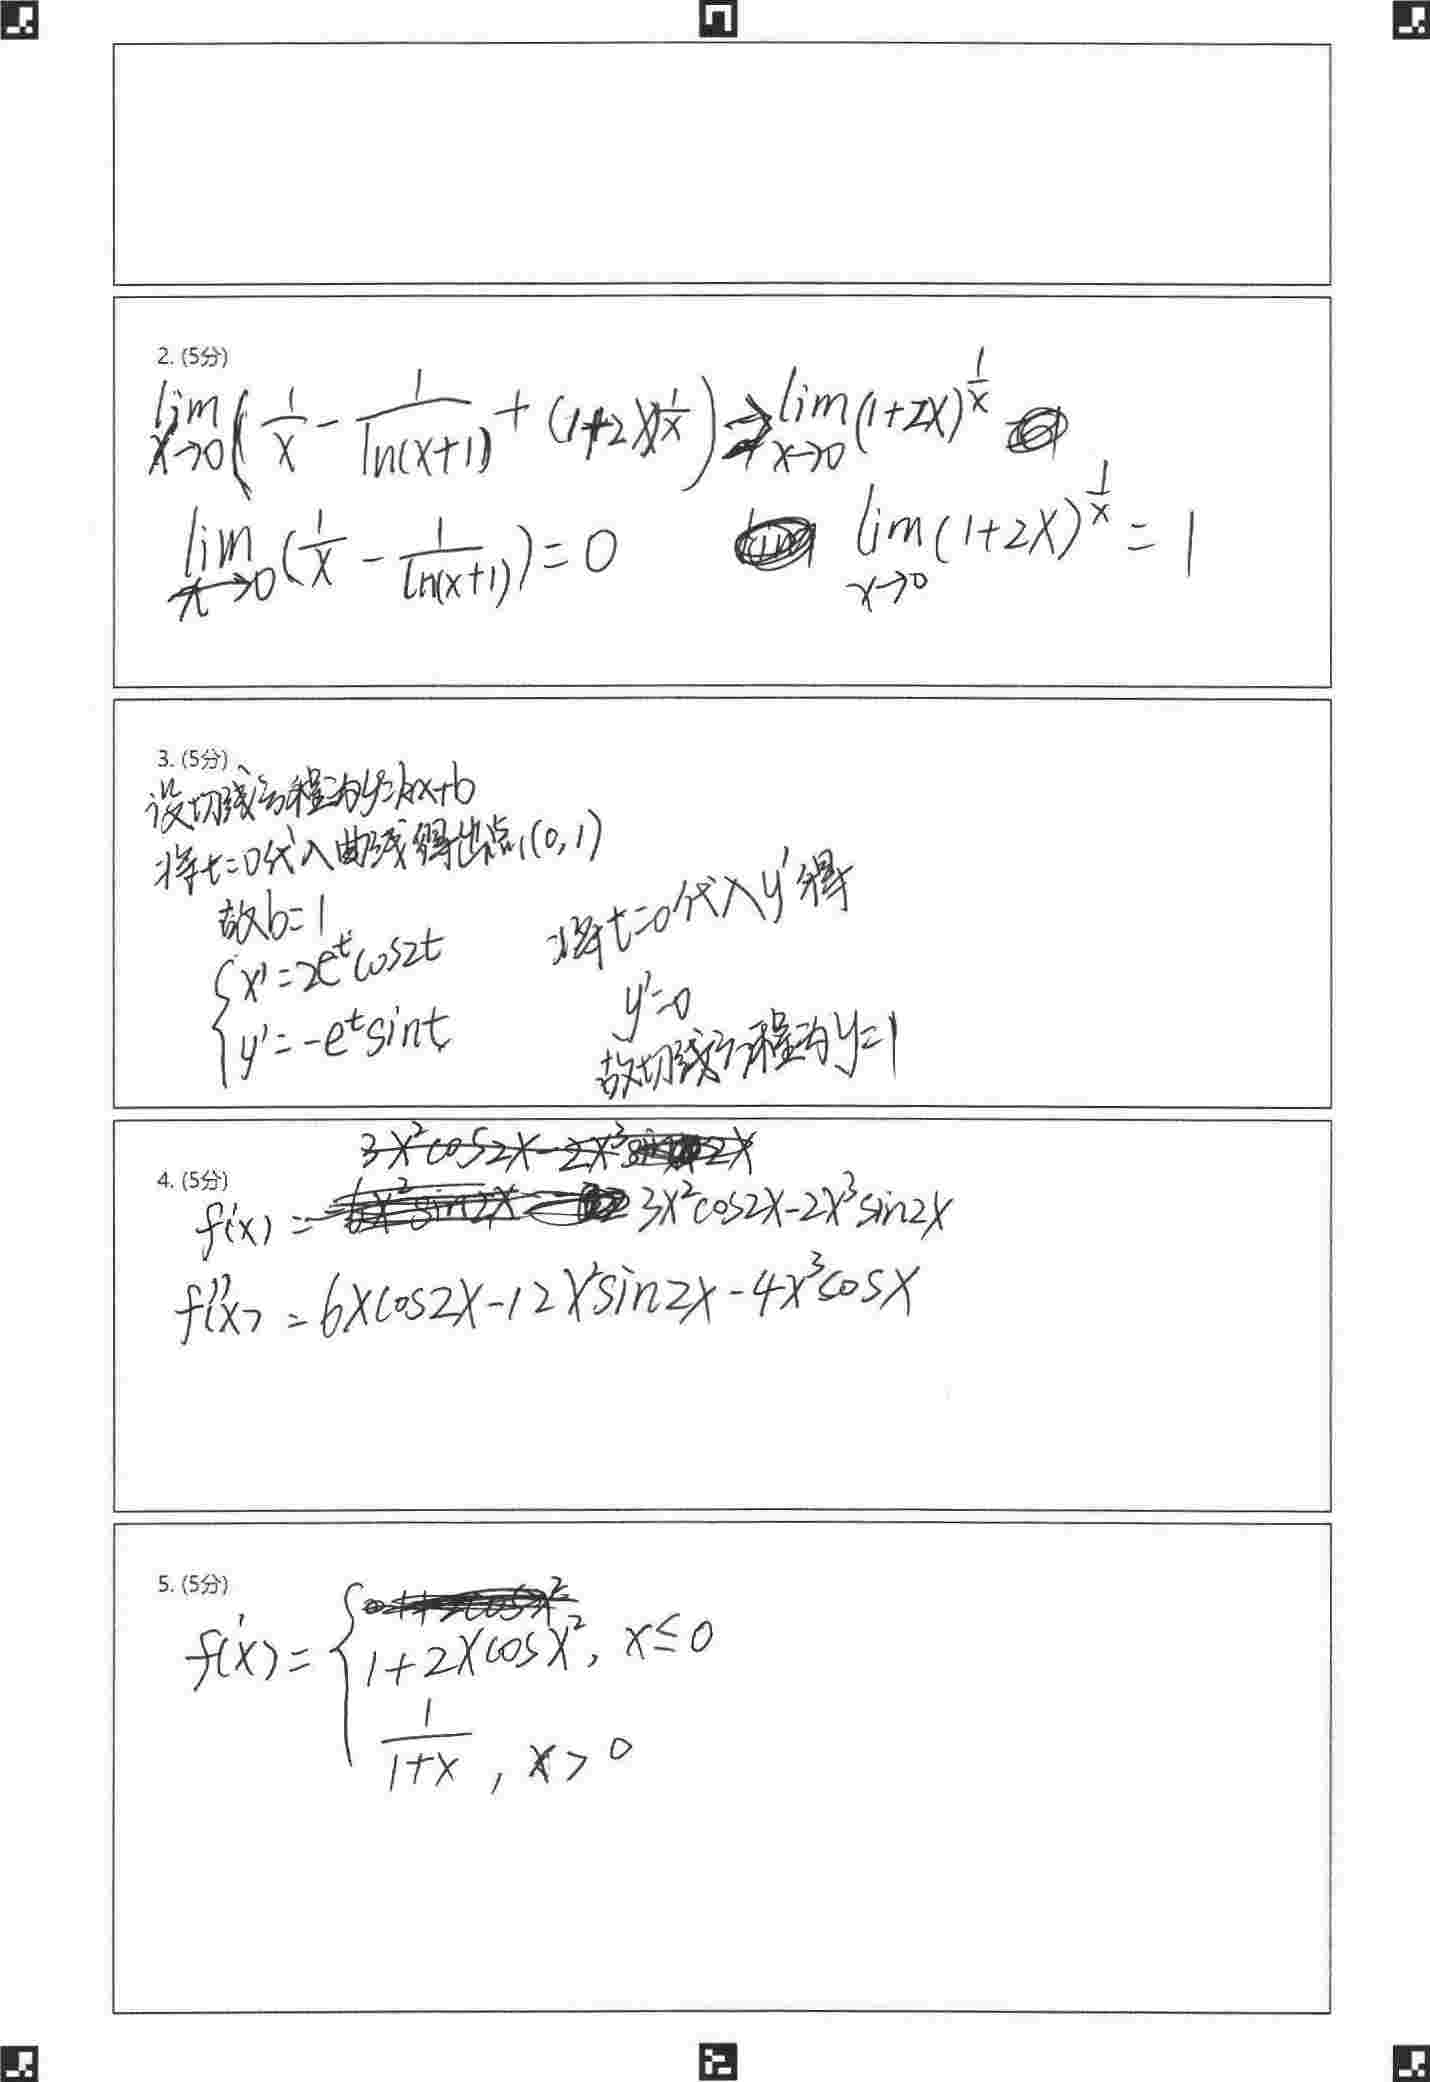 2. (5分)
lim x→0 (1/x - 1/ln(x+1) + (1+2x)^(1/x)) ⇒ lim x→0 (1+2x)^(1/x)
lim x→0 (1/x - 1/ln(x+1)) = 0 lim x→0 (1+2x)^(1/x) = 1
3. (5分)
设切线方程为y=kx+b
将t=0代入曲线得出点(0,1)
故b=1
{x'=2e^t cos2t
y'=-e^t sint
将t=0代入y'得
y'=0
故切线方程为y=1
3x²cos2x-2x³ 2x
4. (5分)
f'(x) = 6x²sin2x 3x²cos2x-2x³sin2x
f''(x) = 6xcos2x-12x²sin2x-4x³cosx
5. (5分)
f'(x) = {1+2xcosx², x≤0
1/(1+x), x>0